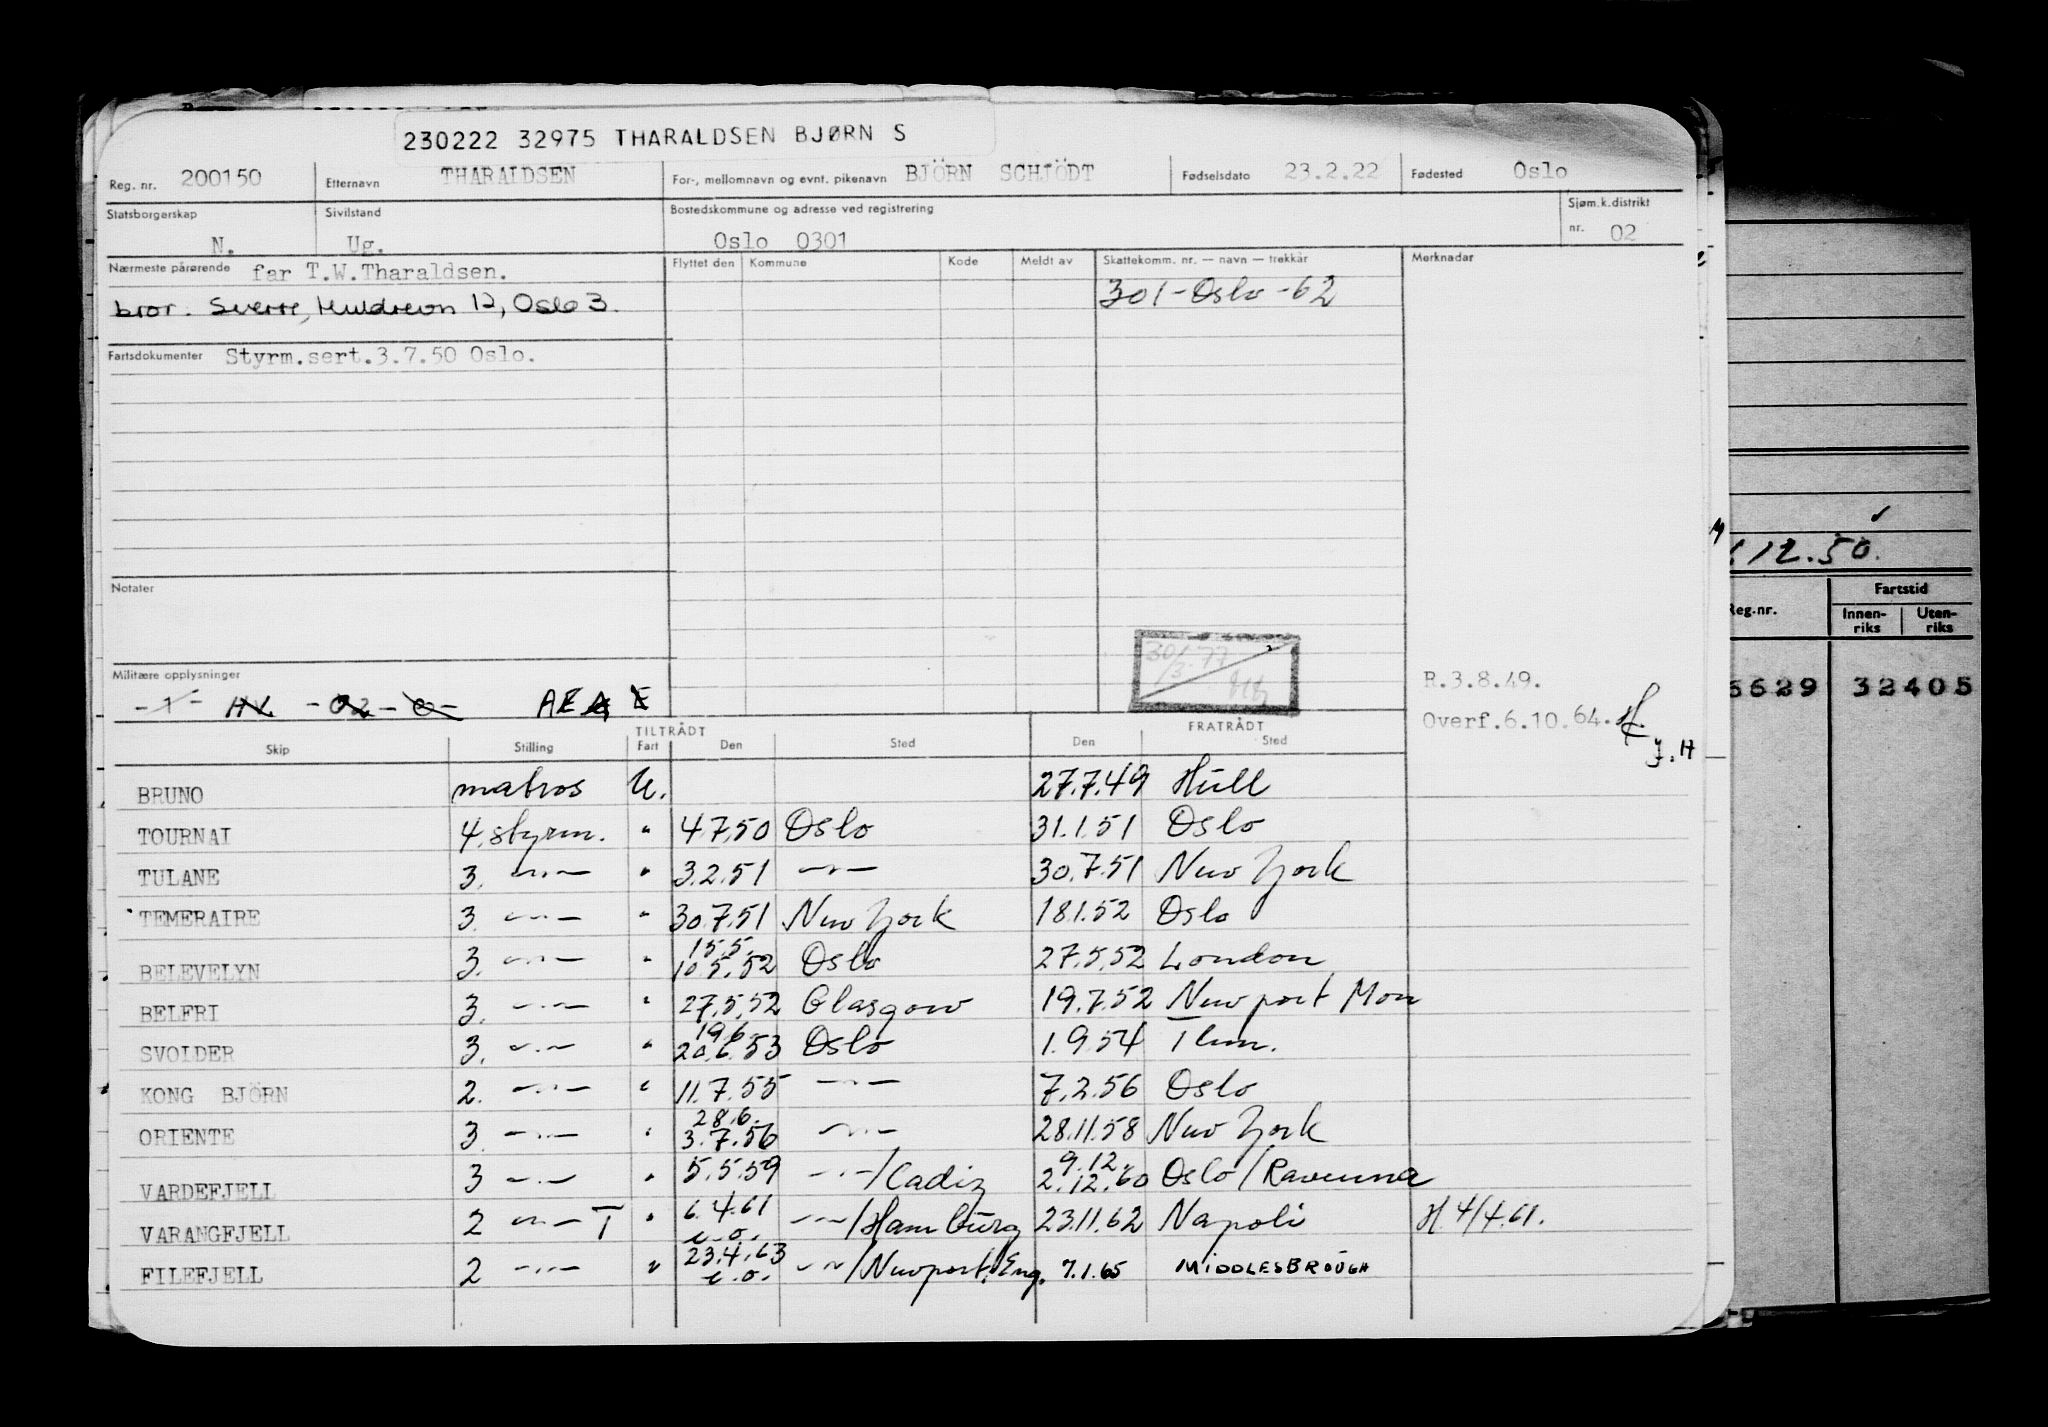 230222 32975 THARALDSEN BJØRN S
Reg. nr. 200150 Etternavn THARALDSEN For-, mellomnavn og evnt. pikenavn BJÖRN SCHJÖDT Fødselsdato 23.2.22 Fødested Oslo
Statsborgerskap Sivilstand Bostedskommune og adresse ved registrering Sjøm.k.distrikt
N. Ug. Oslo 0301 nr. 02
Nærmeste pårørende far T.W.Tharaldsen. Flyttet den Kommune Kode Meldt av Skattekomm. nr. — navn — trekkår Merknader
bror. Sverre, Huldrevn 12, Oslo 3. 301-Oslo-62
Fartsdokumenter Styrm.sert.3.7.50 Oslo.
1.12.50.
Notater
Reg.nr. Fartstid
Innen-riks Uten-riks
Militære opplysninger
R.3.8.49. 5629 32405
- 1 - HV - 02 - 0 -
Overf.6.10.64. H.
J.H
TILTRÅDT FRATRÅDT
Skip Stilling Fart Den Sted Den Sted
BRUNO matros U. 27.7.49 Hull
TOURNAI 4. styrm. " 4.7.50 Oslo 31.1.51 Oslo
TULANE 3. —"— " 3.2.51 —"— 30.7.51 New York
TEMERAIRE 3. —"— " 30.7.51 New York 18.1.52 Oslo
BELEVELYN 3. —"— " 15.5. 10.5.52 Oslo 27.5.52 London
BELFRI 3. —"— " 27.5.52 Glasgow 19.7.52 Newport Mon
SVOLDER 3. —"— " 19.6. 20.6.53 Oslo 1.9.54
KONG BJÖRN 2. —"— " 11.7.55 —"— 7.2.56 Oslo
ORIENTE 3. —"— " 28.6. 3.7.56 —"— 28.11.58 New York
VARDEFJELL 3 —"— " 5.5.59 —"—/Cadiz 9.12. 2.12.60 Oslo/Ravenna
VARANGFJELL 2 —"— T " 6.4.61 e.o. —"—/Hamburg 23.11.62 Napoli H. 4/4.61.
FILEFJELL 2 —"— " 23.4.63 e.o. —"—/Newport, Eng. 7.1.65 MIDDLESBROUGH